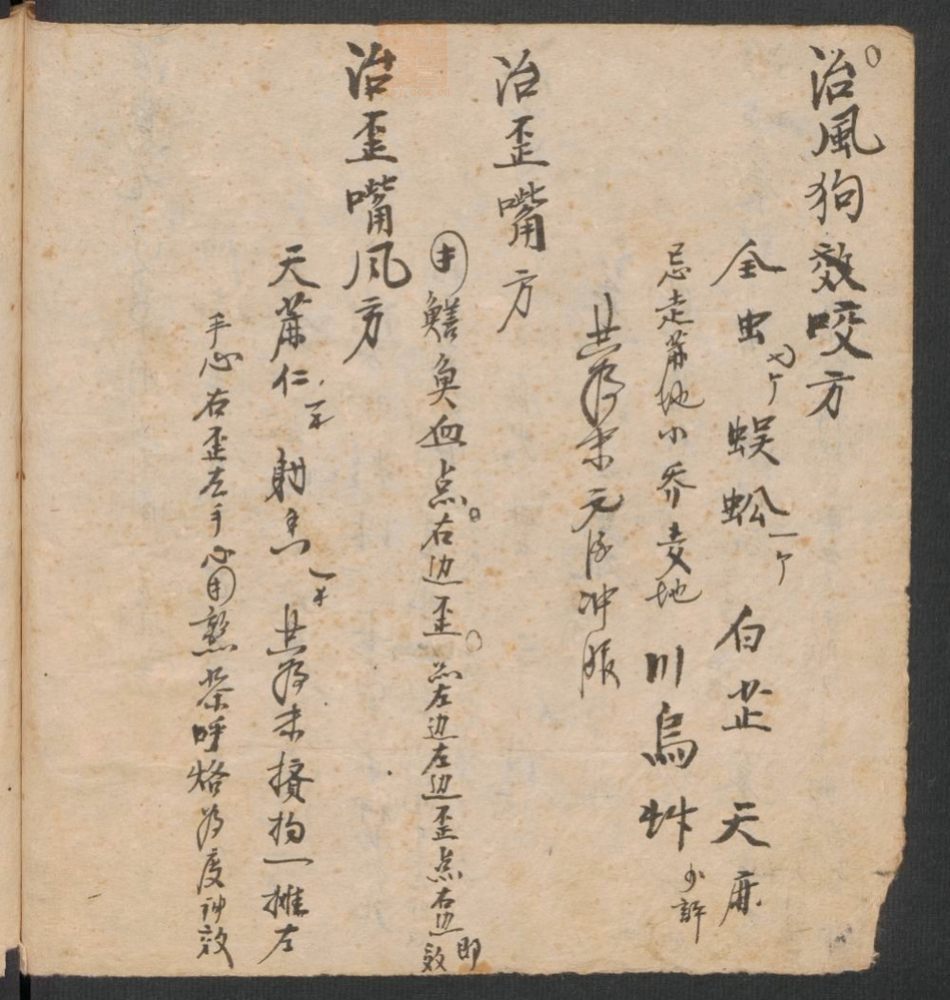 治風狗效咬方
全虫 七个 蜈蚣 一个 白芷 天麻
忌走蔴地小荞麦地 川烏 艸 少許
共為末元 冲服
治歪嘴方
用鱔魚血点右边歪点左边左边歪点右边即效
治歪嘴風方
天蔴仁 一 射香 一 共為末 一推左
手心右歪左手心用熱茶呼烙為度神效